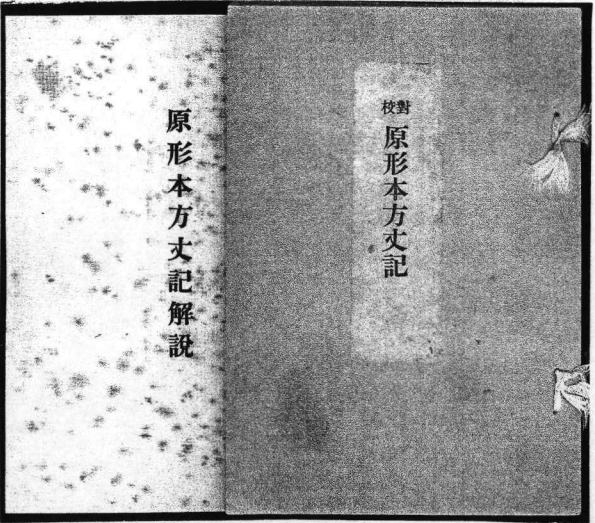 對校 原形本方丈記
原形本方丈記解說